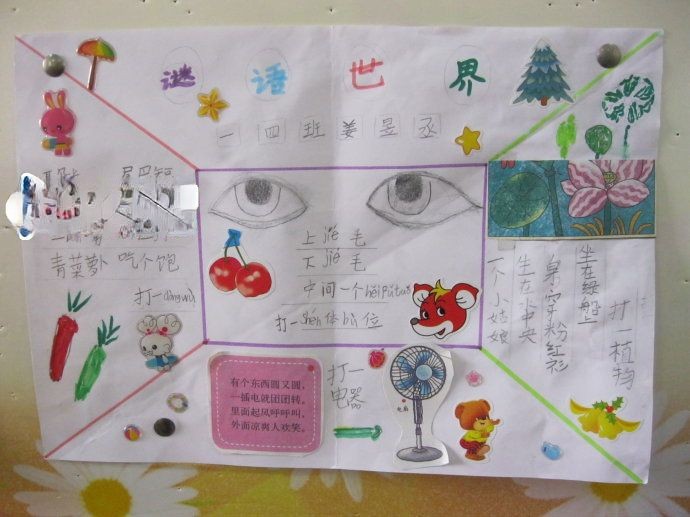 谜语世界
一四班姜昱丞
青菜萝卜 吃个饱
打一dòng wù
上jié毛
下jié毛
中间一个hēi pú tao
打一shēn体bù位
一个小姑娘
生在水中央
身穿粉红衫
坐在绿船上
打一植物
有个东西圆又圆，
一插电就团团转。
里面起风呼呼叫，
外面凉爽人欢笑。
打一
电器